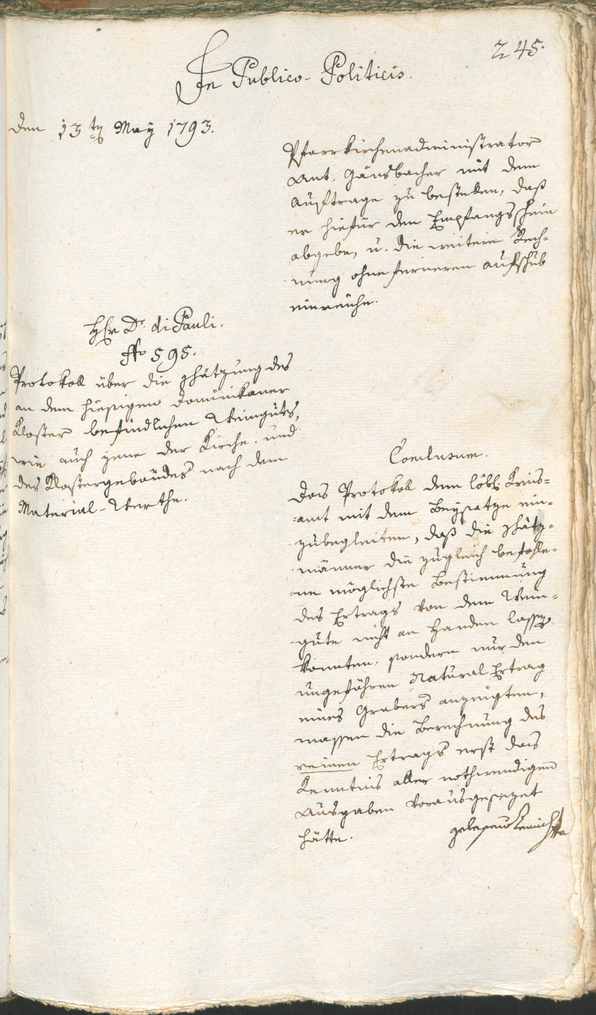 245.
In Publico-Politicis.
den 13ten May 1793.
Pfarrkirchenadministrator
Ant. Gänsbacher mit dem
Auftrage zu bestellen, daß
er hiefür den Empfangsschein
abgebe, u. die weitere Rech-
nung ohne ferneren Aufschub
einreiche.
Hr. Dr. di Pauli.
No 595.
Protokoll über die Schätzung des
an dem hiesigen Dominikaner
Kloster befindlichen Weinguts,
wie auch jene der Kirche, und
des Klostergebäudes nach dem
Material-Werthe.
Conclusum.
Das Protokol dem löbl. Kreis-
amt mit dem Beysatze ein-
zubegleiten, daß die Schätz-
männer die zugleich befohle-
ne möglichste Bestimmung
des Ertrags von dem Wein-
gute nicht an Handen lassen
konnten, sondern nur den
ungefähren Natural Ertrag
eines Grabers anzeigten,
massen die Berechnung des
reinen Ertrags erst das
Kenntnis aller nothwendigen
Ausgaben vorausgesezet
hätte.
gelesen